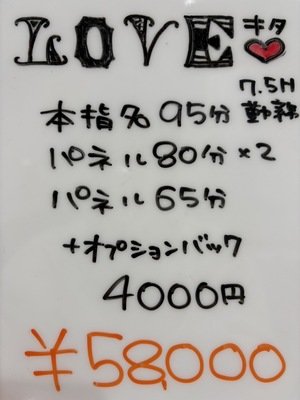 LOVE キタ
7.5H
本指% 95分 勤務
パネル80分×2
パネル65分
+オプションバック
4000円
¥58,000